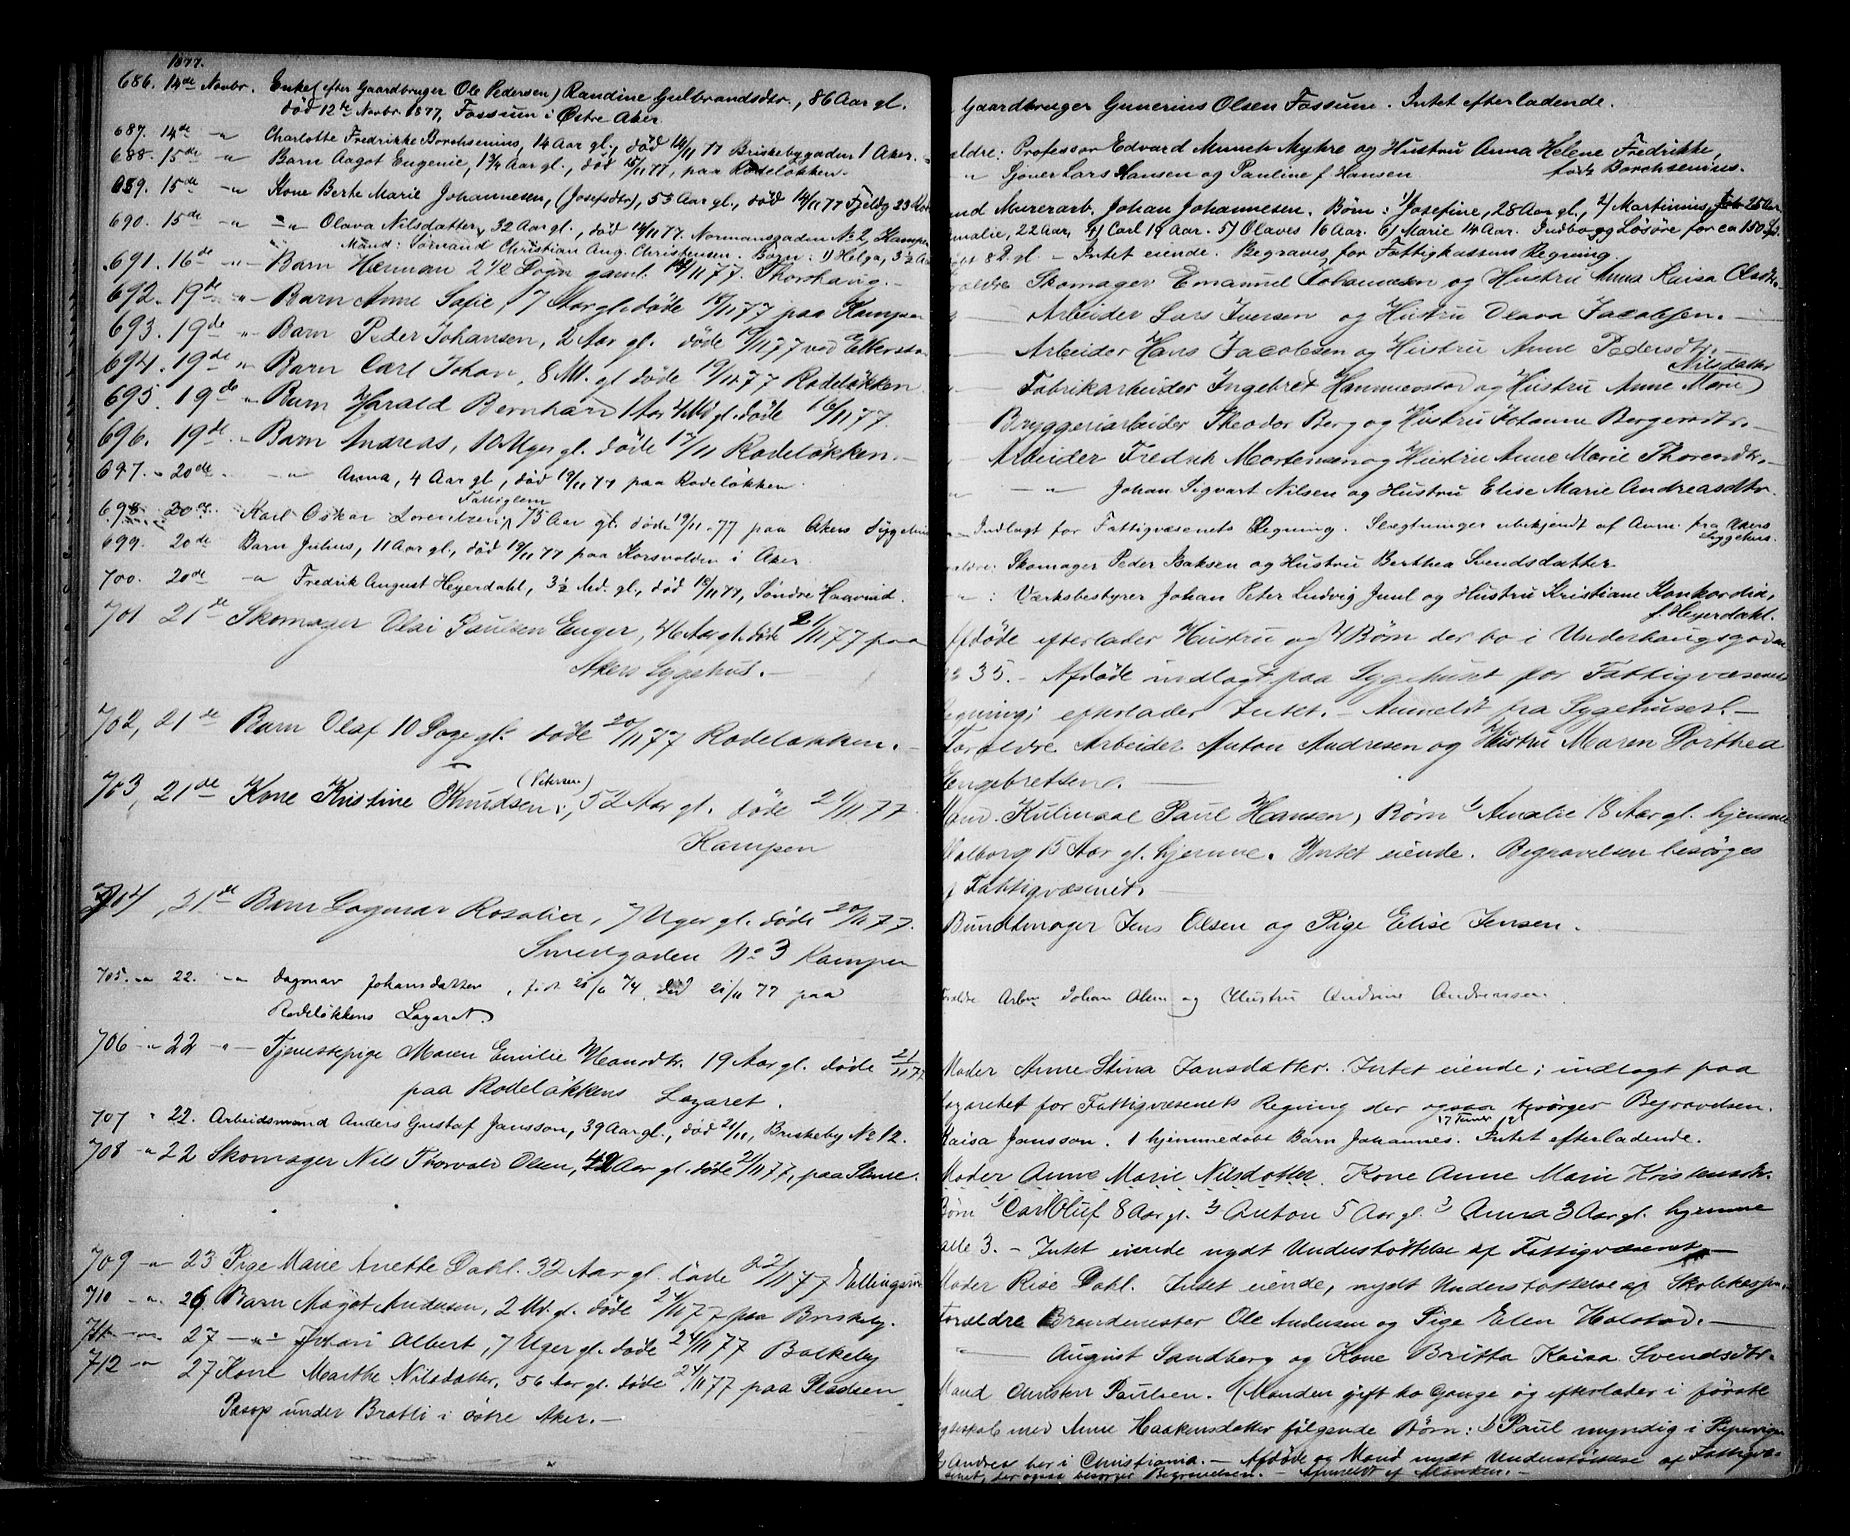 1877.
686. 14de Novbr. Enke (efter Gaardbruger Ole Pedersen) Randine Gulbrandsdtr., 86 Aar gl.
død 12te Novbr 1877, Fossum i Østre Aker
687. 14de -"- Charlotte Fredrikke Borchsenius, 14 Aar gl., død 14/11 77 Briskebygaden 1 Aker.
688. 15de -"- Barn Aagot Eugenie, 1 3/4 Aar gl., død 15/11 77, paa Rodeløkken.
689. 15de -"- Kone Berte Marie Johannesen, (Josefsdtr), 53 Aar gl., død 14/11 77 Fjeldg 23
690. 15de -"- -"- Olava Nilsdatter, 32 Aar gl., død 14/11 77. Normansgaden No 2, Kampen
Mand: Sømand Christian Aug. Christensen. Børn: 1) Helga, 3 1/2 A
691. 16de -"- Barn Herman 2 1/2 Døgn gaml. 14/11 77. Thorshaug.
692. 19de " Barn Anne Sofie, 7 Aar gl. døde 18/11 77 paa Kampen
693. 19de " Barn Peder Johansen, 2 Aar gl. døde 17/11 77 ved
694. 19de " Barn Carl Johan, 8 Md. gl døde 19/11 77 Rodeløkken
695. 19de " Barn Harald Bernhard 1 Aar 4 Md gl. døde 16/11 77.
696. 19de " Barn Andreas, 10 Uger gl. døde 17/11 Rodeløkken.
697. " 20de -"- Anna, 4 Aar gl, død 19/11 77 paa Rodeløkken.
698. 20de Karl Oskar Lorentzen, Fattiglem 75 Aar gl. døde 19/11 77 paa Akers Sygehus
699. 20de Barn Julius, 11 Aar gl., død 19/11 77 paa Korsvolden i Aker
700. 20de -"- Fredrik August Heyerdahl, 3 1/2 Md. gl., død 18/11 77, Søndre Haavind.
701 21de Skomager Olai Paulsen Enger, 46 Aar gl. døde 21/11 77 paa
Akers Sygehus.
702, 21de Barn Olaf 10 Dage gl. døde 20/11 77 Rodeløkken.
703, 21de Kone Kristine Knudsen, (Petersen) 52 Aar gl. døde 21/11 77
Kampen
704, 21de Barn Dagmar Rosalie, 7 Uger gl. døde 20/11 77.
Smedgaden No 3 Kampen
705. " 22. -"- Dagmar Johansdatter, født 74, død 21/11 77 paa
Rodeløkkens Lazaret.
706 " 22 " Tjenestepige Maren Emilie Hansdtr. 19 Aar gl. døde 21/11 77
paa Rodeløkkens Lazaret.
707 " 22. Arbeidsmand Anders Gustaf Jansson, 39 Aar gl., død 21/11, Briskeby No 12.
708 " 22 Skomager Nils Thorvald Olsen, 42 Aar gl. døde 21/11 77, paa
709 " 23 Pige Marie Anette Dahl. 32 Aar gl. døde 22/11 77
710 " 26 Barn Aagot Andersen, 2 Md. gl. døde 24/11 77 paa Briskeby.
711 " 27 -"- Johan Albert, 7 Uger gl. døde 24/11 77 Balkeby
712 " 27 Kone Marthe Nilsdatter, 56 Aar gl. døde 24/11 77 paa Pladsen
Pasop under Bratli i østre Aker.
Gaardbruger Gunerius Olsen Fossum. Intet efterladende.
ældre: Professor Edvard Munch Myhre og Hustru Anna Helene Fredrikke
født Borchsenius.
" Gjører Lars Hansen og Pauline f. Hansen
and Murerarb. Johan Johannesen. Børn: 1) Josefine, 28 Aar gl., 2) Martinius, 25 Aar
malie, 22 Aar, 4) Carl 19 Aar. 5) Olaves 16 Aar. 6) Marie 14 Aar. Indbo og Løsøre for ca 150
- Intet eiende. Begraves for Fattigkassens Regning.
ældre Skomager Emanuel Johannesen og Hustru Anna Kaisa Olsdtr.
Arbeider Lars Iversen og Hustru Olava Jacobsen.
Arbeider Hans Jacobsen og Hustru Anne Pedersdtr.
Fabrikarbeider Ingebret Hammerstad og Hustru Anne Marie Nilsdatter
Bryggeriarbeider Theodor Berg og Hustru Johanne Bergersdtr.
Arbeider Fredrik Mortensen og Hustru Anne Marie Thorendtr.
-"- Johan Sigvart Nilsen og Hustru Elise Marie Andreasdtr.
Indlagt for Fattigvæsenets Regning. Slægtninger ubekjendt af Anm. fra Akers
Sygehus.
ældre: Skomager Peder Isaksen og Hustru Berthea Svendsdatter
" : Værksbestyrer Johan Peter Ludvig Juul og Hustru Kristiane Konkordia,
f. Heyerdahl.
Afdøde efterlader Hustru og 4 Børn der bo i Underhaugsgaden
No 35. - Afdøde indlagt paa Sygehuset for Fattigvæsenets
Regning; efterlader Intet. - Anmeldt fra Sygehuset. -
Forældre Arbeider Anton Andresen og Hustru Maren Dorthea
Engebretsen.
Mand. Paul Hansen, Børn 1) Amalie 18 Aar gl. hjemme
Valborg 15 Aar gl. hjemme. Intet eiende. Begravelsen besørges
f Fattigvæsenet.
Bundtmager Jens Olsen og Pige Elise Jensen.
Forældre Arbm Johan Olsen og Hustru Andrine Andreasen.
Moder Anne Stina Jansdatter. Intet eiende; indlagt paa
Lazaretet for Fattigvæsenets Regning der ogsaa besørger Begravelsen.
Kaisa Jansson. 1 hjemmedøbt Barn Johannes. Intet efterladende.
Moder Anne Marie Nilsdatter. Kone Anne Marie Kristensdtr.
Børn 1) Carl Oluf 8 Aar gl. 2) Anton 5 Aar gl. 3) Anna 3 Aar gl. hjemme
alle 3. - Intet eiende nydt Understøttelse af Fattigvæsenet.
Moder Rise Dahl. Intet eiende, nydt Understøttelse af
Forældre Brandmester Ole Andersen og Pige Elen Holstad.
-"- August Sandberg og Kone Britta Kaisa Svendsdtr.
Mand Christen Paulsen. (Manden gift to Gange og efterlader i første
Egteskab med Anne Haakensdatter følgende Børn: 1) Paul myndig i Pipervigen
2) Andreas her i Christiania. - Afdøde og Mand nydt Understøttelse af Fattigvæ-
senet, der ogsaa besørger Begravelsen. - Anmeldt af Manden. -